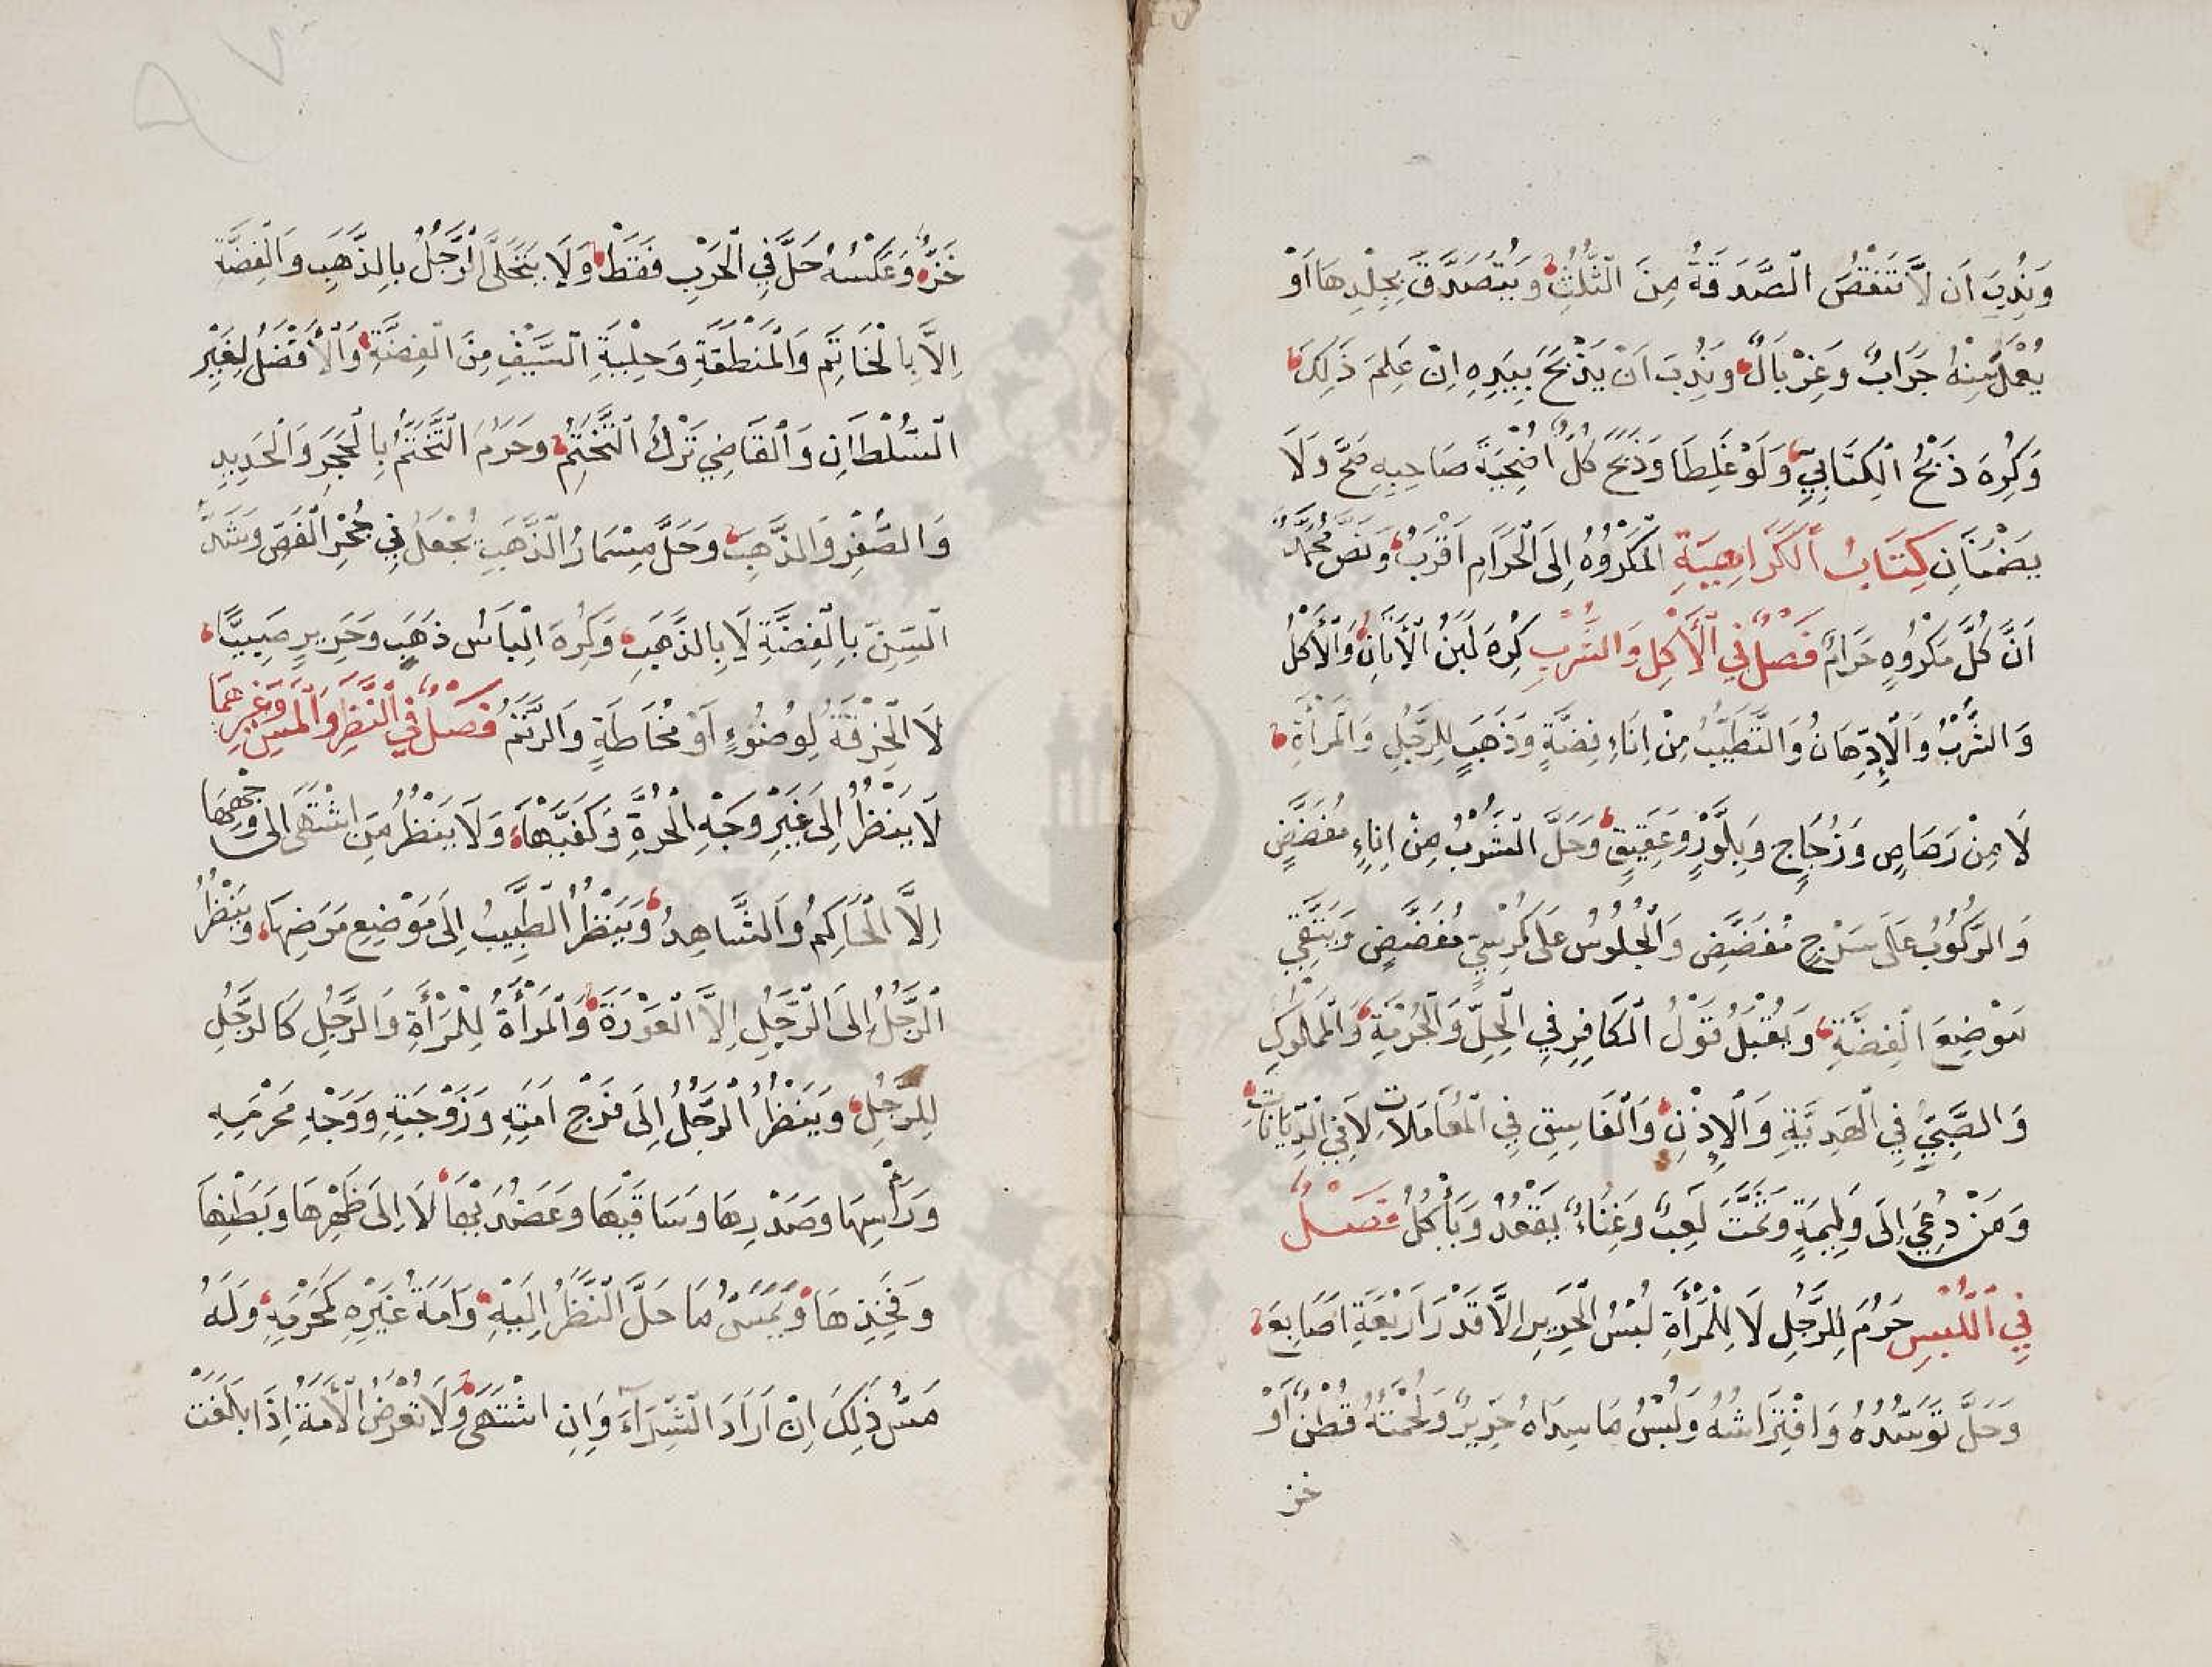 وَنُدِبَ اَن لَّا تَنْقُصَ الصَّدَقَةُ مِنَ الثُّلُثِ وَيُتَصَدَّقُ بِجِلْدِهَا اَوْ
يُعْمَلُ مِنْهُ جِرَابٌ وَغِرْبَالٌ وَنُدِبَ اَنْ يَذْبَحَ بِيَدِهِ اِنْ عَلِمَ ذَلِكَ
وَكُرِهَ ذَبْحُ الْكِتَابِيِّ وَلَوْ غَلِطَا وَذَبَحَ كُلٌّ اُضْحِيَةَ صَاحِبِهِ صَحَّ وَلَا
يَضْمَنَانِ كِتَابُ الْكَرَاهِيَةِ الْمَكْرُوْهُ اِلَى الْحَرَامِ اَقْرَبُ وَنَصَّ مُحَمَّدٌ
اَنَّ كُلَّ مَكْرُوْهٍ حَرَامٌ فَصْلٌ فِي الْأَكْلِ وَالشُّرْبِ كُرِهَ لَبَنُ الْأَتَانِ وَالْأَكْلُ
وَالشُّرْبُ وَالْاِدِّهَانُ وَالتَّطَيُّبُ مِنْ اِنَاءِ فِضَّةٍ وَذَهَبٍ لِلرَّجُلِ وَالْمَرْأَةِ
لَا مِنْ رَصَاصٍ وَزُجَاجٍ وَبِلَّوْرٍ وَعَقِيقٍ وَحَلَّ الشُّرْبُ مِنْ اِنَاءٍ مُفَضَّضٍ
وَالرُّكُوْبُ عَلَى سَرْجٍ مُفَضَّضٍ وَالْجُلُوْسُ عَلَى كُرْسِيٍّ مُفَضَّضٍ وَيَتَّقِي
مَوْضِعَ الْفِضَّةِ وَيُقْبَلُ قَوْلُ الْكَافِرِ فِي الْحِلِّ وَالْحُرْمَةِ وَالْمَمْلُوْكِ
وَالصَّبِيِّ فِي الْهَدِيَّةِ وَالْاِذْنِ وَالْفَاسِقِ فِي الْمُعَامَلَاتِ لَا فِي الدِّيَانَاتِ
وَمَنْ دُعِيَ اِلَى وَلِيمَةٍ وَثَمَّتَ لَعِبٌ وَغِنَاءٌ يَقْعُدُ وَيَأْكُلُ فَصْلٌ
فِي اللُّبْسِ حَرُمَ لِلرَّجُلِ لَا لِلْمَرْأَةِ لُبْسُ الْحَرِيرِ اِلَّا قَدْرَ اَرْبَعَةِ اَصَابِعَ
وَحَلَّ تَوَسُّدُهُ وَافْتِرَاشُهُ وَلُبْسُ مَا سَدَاهُ حَرِيرٌ وَلُحْمَتُهُ قُطْنٌ اَوْ
خز
خَزٌّ وَعَكْسُهُ حَلَّ فِي الْحَرْبِ فَقَطْ وَلَا يَتَحَلَّى الرَّجُلُ بِالذَّهَبِ وَالْفِضَّةِ
اِلَّا بِالْخَاتَمِ وَالْمِنْطَقَةِ وَحِلْيَةِ السَّيْفِ مِنَ الْفِضَّةِ وَالْأَفْضَلُ لِغَيْرِ
السُّلْطَانِ وَالْقَاضِي تَرْكُ التَّخَتُّمِ وَحَرُمَ التَّخَتُّمُ بِالْحَجَرِ وَالْحَدِيدِ
وَالصُّفْرِ وَالذَّهَبِ وَحَلَّ مِسْمَارُ الذَّهَبِ يُجْعَلُ فِي جُحْرِ الْفَصِّ وَشَدُّ
السِّنِّ بِالْفِضَّةِ لَا بِالذَّهَبِ وَكُرِهَ اِلْبَاسُ ذَهَبٍ وَحَرِيرٍ صَبِيًّا
لَا الْخِرْقَةُ لِوُضُوْءٍ اَوْ مُخَاطَةٍ وَالرَّتَمُ فَصْلٌ فِي النَّظَرِ وَالْمَسِّ وَغَيْرِهِمَا
لَا يَنْظُرُ اِلَى غَيْرِ وَجْهِ الْحُرَّةِ وَكَفَّيْهَا وَلَا يَنْظُرُ مَنِ اشْتَهَى اِلَى وَجْهِهَا
اِلَّا الْحَاكِمُ وَالشَّاهِدُ وَيَنْظُرُ الطَّبِيبُ اِلَى مَوْضِعِ مَرَضِهَا وَيَنْظُرُ
الرَّجُلُ اِلَى الرَّجُلِ اِلَّا الْعَوْرَةَ وَالْمَرْأَةُ لِلْمَرْأَةِ وَالرَّجُلِ كَالرَّجُلِ
لِلرَّجُلِ وَيَنْظُرُ الرَّجُلُ اِلَى فَرْجِ اَمَتِهِ وَزَوْجَتِهِ وَوَجْهِ مَحْرَمِهِ
وَرَأْسِهَا وَصَدْرِهَا وَسَاقَيْهَا وَعَضُدَيْهَا لَا اِلَى ظَهْرِهَا وَبَطْنِهَا
وَفَخِذِهَا وَيَمَسُّ مَا حَلَّ النَّظَرُ اِلَيْهِ وَاَمَةُ غَيْرِهِ كَمَحْرَمِهِ وَلَهُ
مَسُّ ذَلِكَ اِنْ اَرَادَ الشِّرَآءَ وَاِنِ اشْتَهَى وَلَا تُعْرَضُ الْأَمَةُ اِذَا بَلَغَتْ